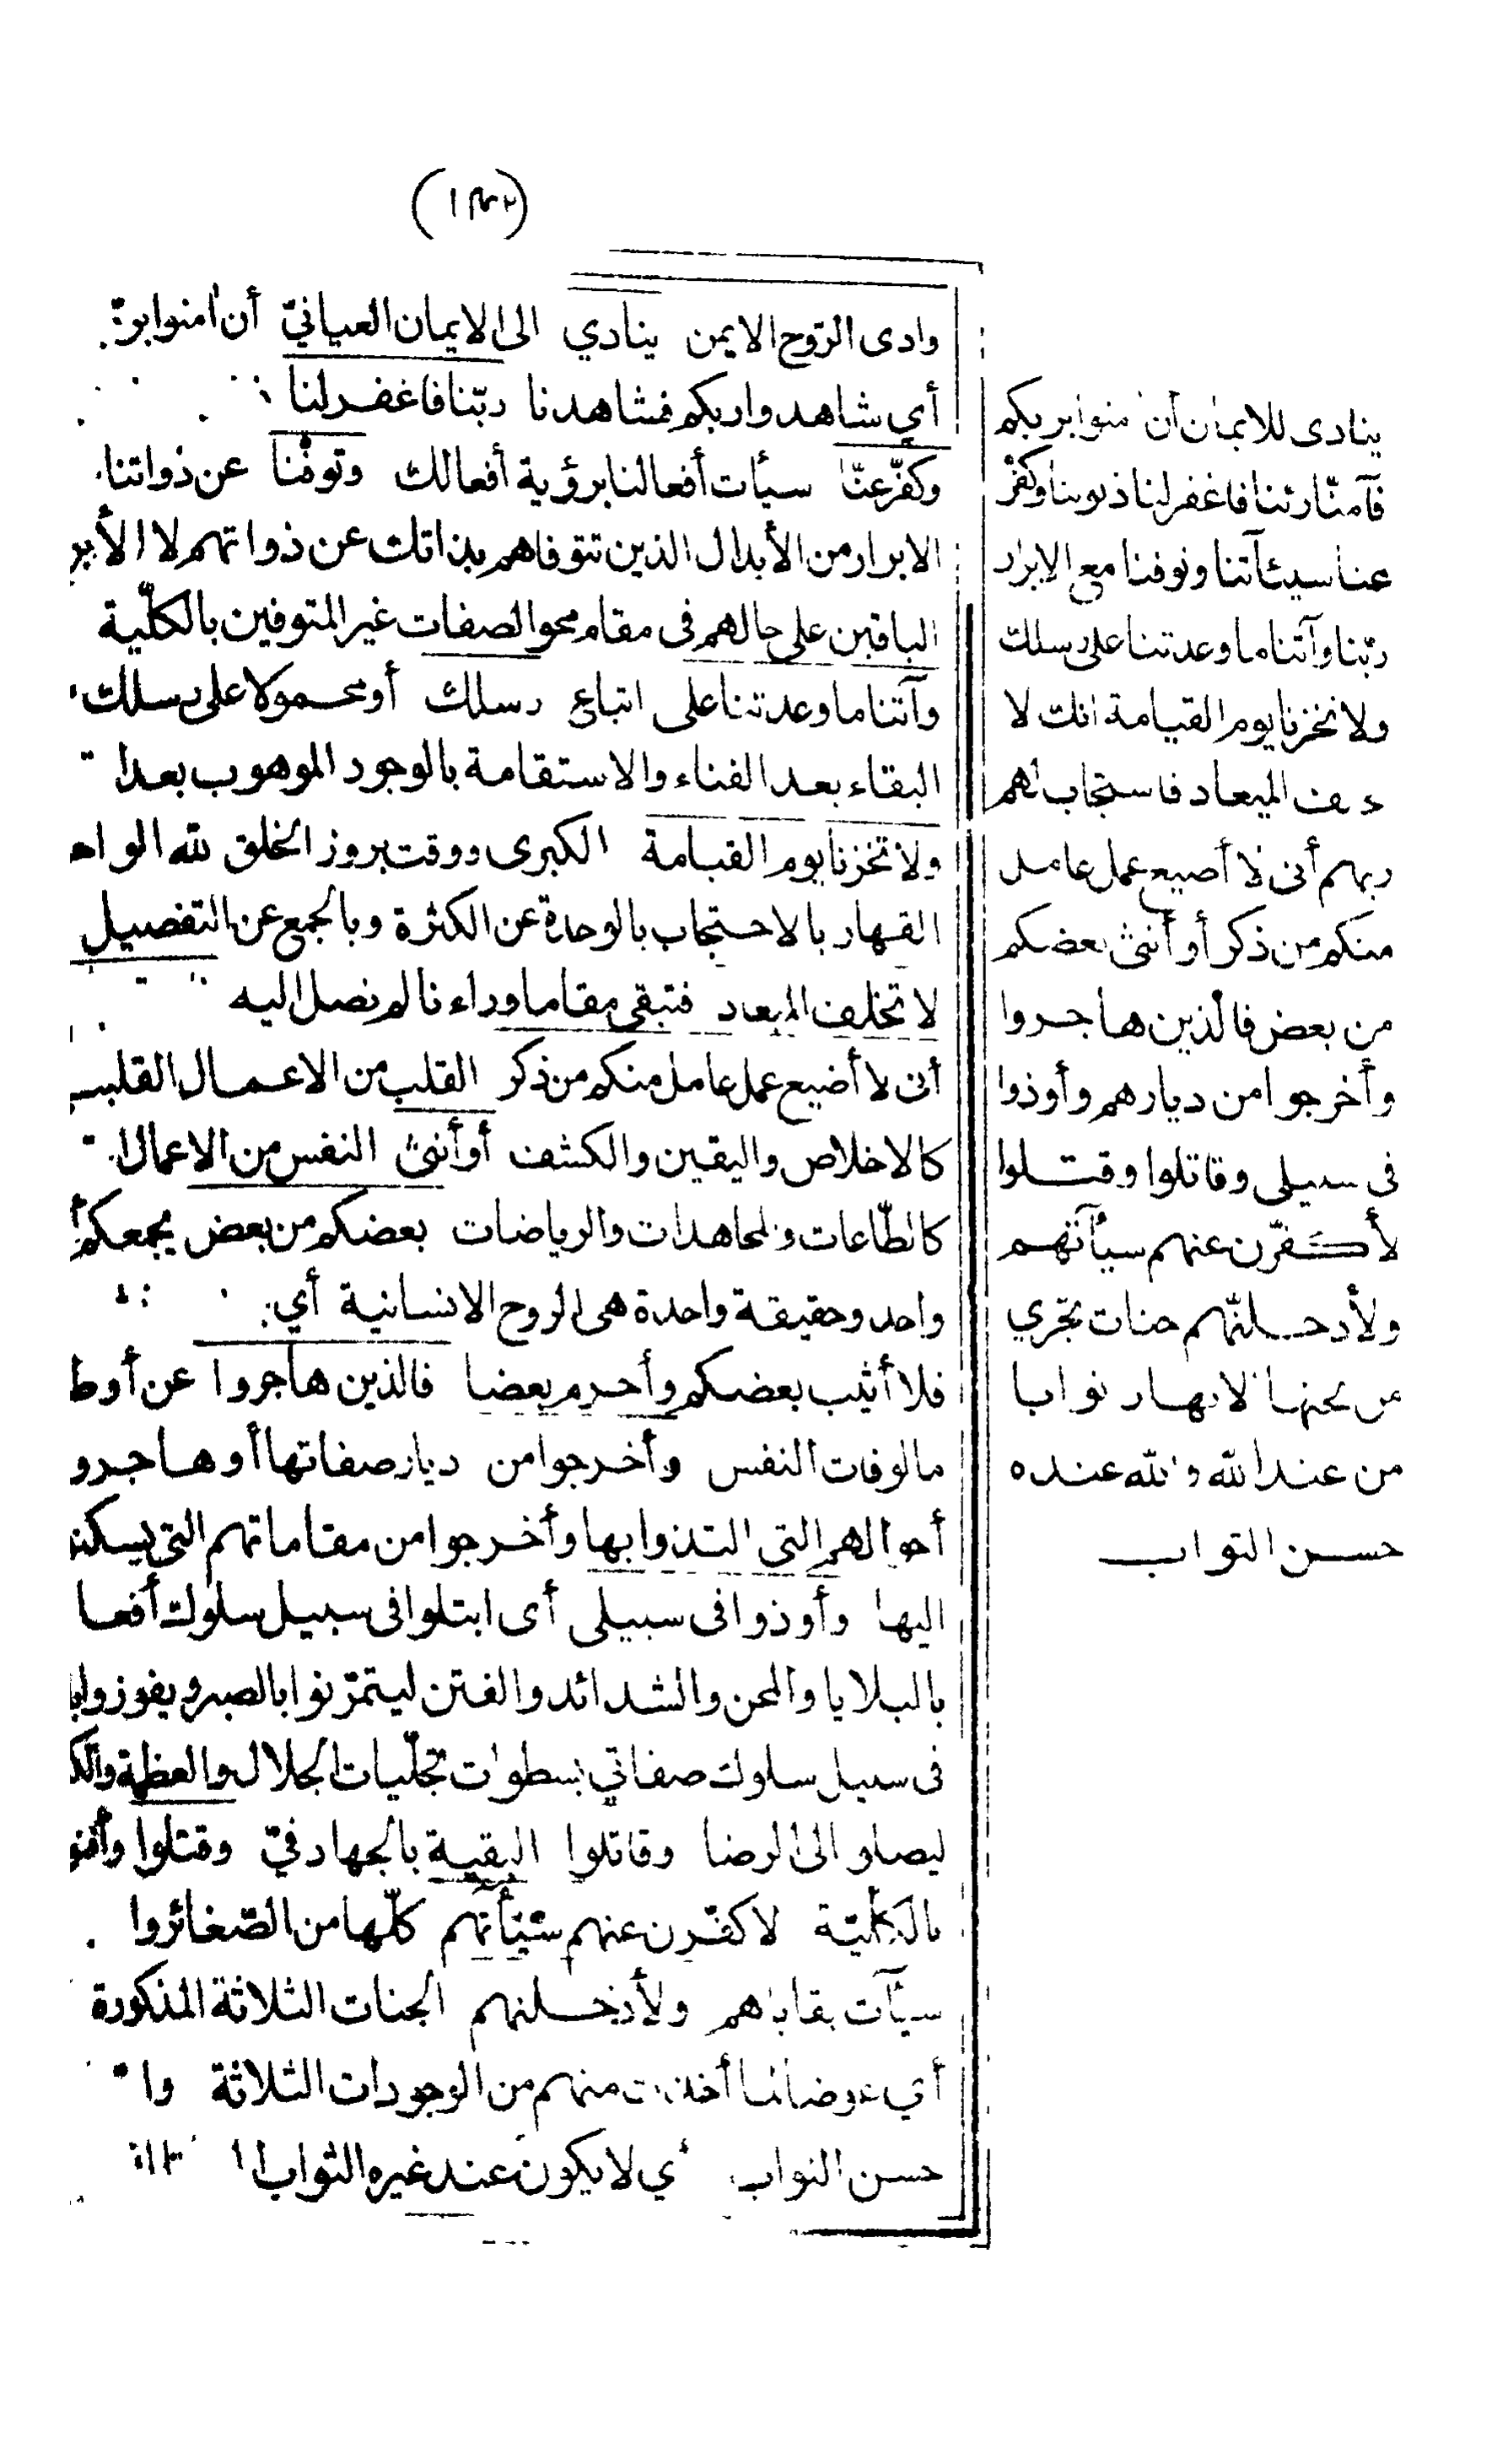 ينادى للايمان أن آمنوا بربكم
فآمنا ربنا فاغفر لنا ذنوبنا وكفر
عنا سيئآتنا وتوفنا مع الابرار
ربنا وآتنا ما وعدتنا على رسلك
ولا تخزنا يوم القيامة انك لا
ف الميعاد فاستجاب لهم
ربهم أنى لا أضيع عمل عامل
منكم من ذكر أو أنثى بعضكم
من بعض فالذين هاجروا
وأخرجوا من ديارهم وأوذوا
فى سبيلى وقاتلوا وقتلوا
لأكفرن عنهم سيأتهم
ولأدخلنهم جنات تجرى
من تحتها الانهار ثوابا
من عند الله والله عنده
حسن الثواب
وادى الروح الايمن ينادي الى الايمان العياني أن آمنوا
أي شاهدوا ربكم فشاهدنا ربنا فاغفر لنا
وكفر عنا سيأت أفعالنا برؤية أفعالك وتوفنا عن ذواتنا
الابرار من الأبدال الذين تتوفاهم بذاتك عن ذواتهم لا
الباقين على حالهم فى مقام محو الصفات غير المتوفين بالكلية
وآتنا ما وعدتنا على اتباع رسلك أو محمولا على رسلك
البقاء بعد الفناء والاستقامة بالوجود الموهوب بعد
ولا تخزنا يوم القيامة الكبرى ووقت بروز الخلق لله
القهار بالاحتجاب بالوحدة عن الكثرة وبالجمع عن التفصيل
لا تخلف الميعاد فتبقى مقاما وراءنا لم نصل اليه
أنى لا أضيع عمل عامل منكم من ذكر القلب من الاعمال
كالاخلاص واليقين والكشف أو أنثى النفس من الاعمال
كالطاعات والمجاهدات والرياضات بعضكم من بعض يجمعكم
واحد وحقيقة واحدة هى الروح الانسانية أي
فلا أثيب بعضكم وأحرم بعضا فالذين هاجروا عن
مالوفات النفس وأخرجوا من ديار صفاتها أو
أحوالهم التى التذوا بها وأخرجوا من مقاماتهم التى
اليها وأوذوا فى سبيلى أى ابتلوا فى سبيل سلوك
بالبلايا والمحن والشدائد والفتن ليتمرنوا بالصبر ويفوزوا
فى سبيل سلوك صفاتي بسطوات تجليات الجلال والعظمة
ليصلوا الى الرضا وقاتلوا البقية بالجهاد في وقتلوا
بالكلية لاكفرن عنهم سيأتهم كلها من الصغائر
سيآت بقاياهم ولأدخلنهم الجنات الثلاثة المذكورة
أي عوضا لما أخذت منهم من الوجودات الثلاثة
حسن الثواب أي لا يكون عند غيره الثواب